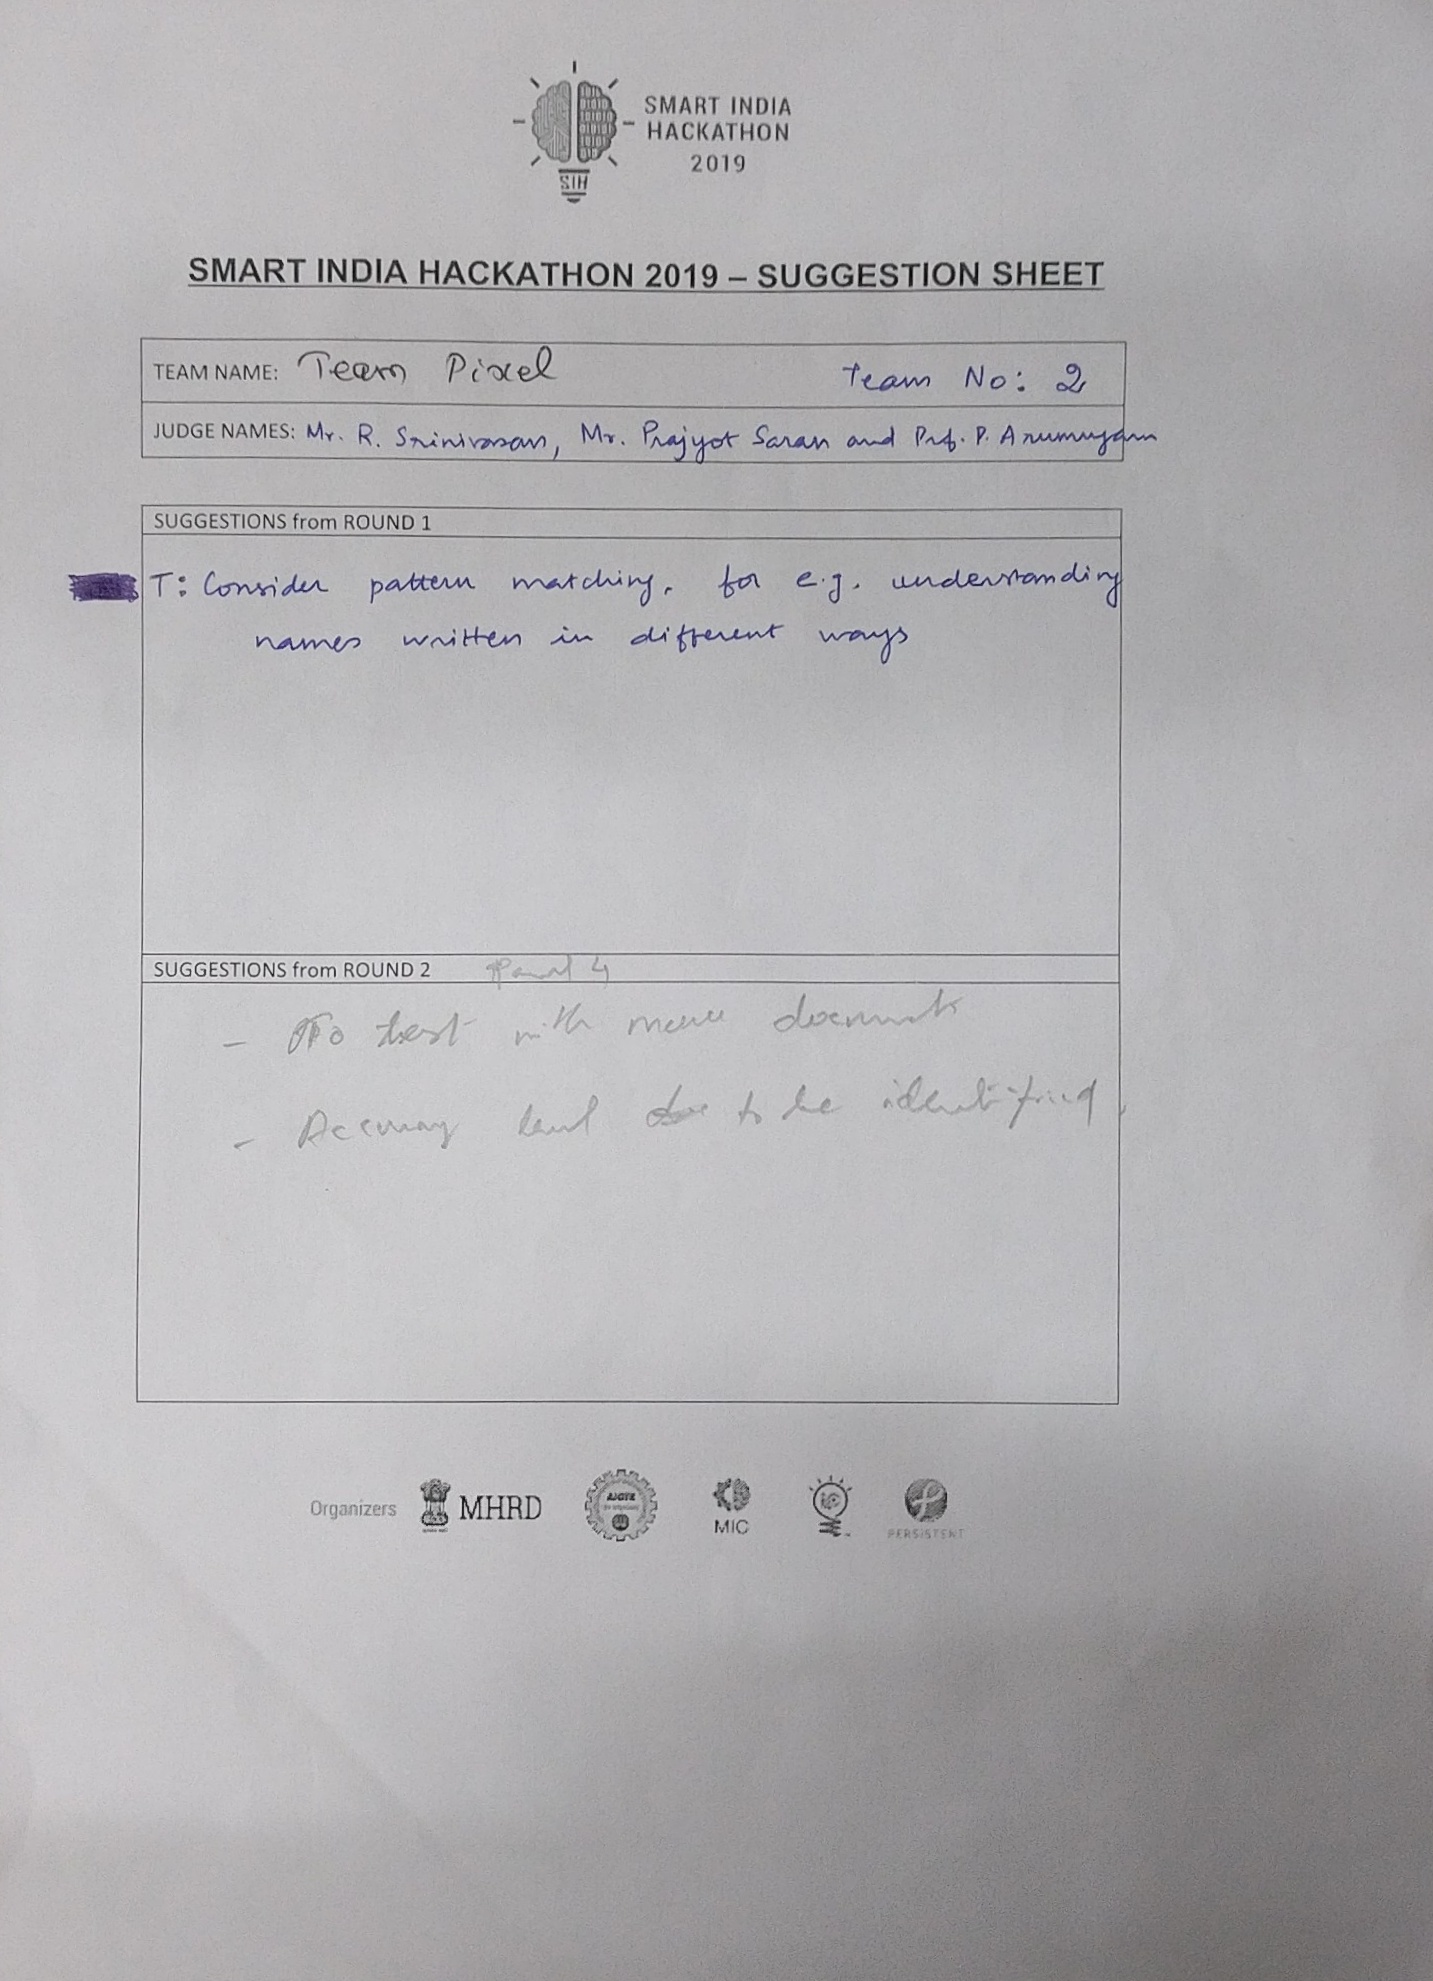 SMART INDIA
HACKATHON
2019
SIH
SMART INDIA HACKATHON 2019 – SUGGESTION SHEET
TEAM NAME: Team Pixel Team No: 2
JUDGE NAMES: Mr. R. Srinivasan, Mr. Prajyot Saran and Prof. P. Arumugam
SUGGESTIONS from ROUND 1
T: Consider pattern matching. for e.g. understanding
names written in different ways
SUGGESTIONS from ROUND 2
- To test with more documents
- Accuracy level to be identified
Organizers MHRD AICTE MIC PERSISTENT